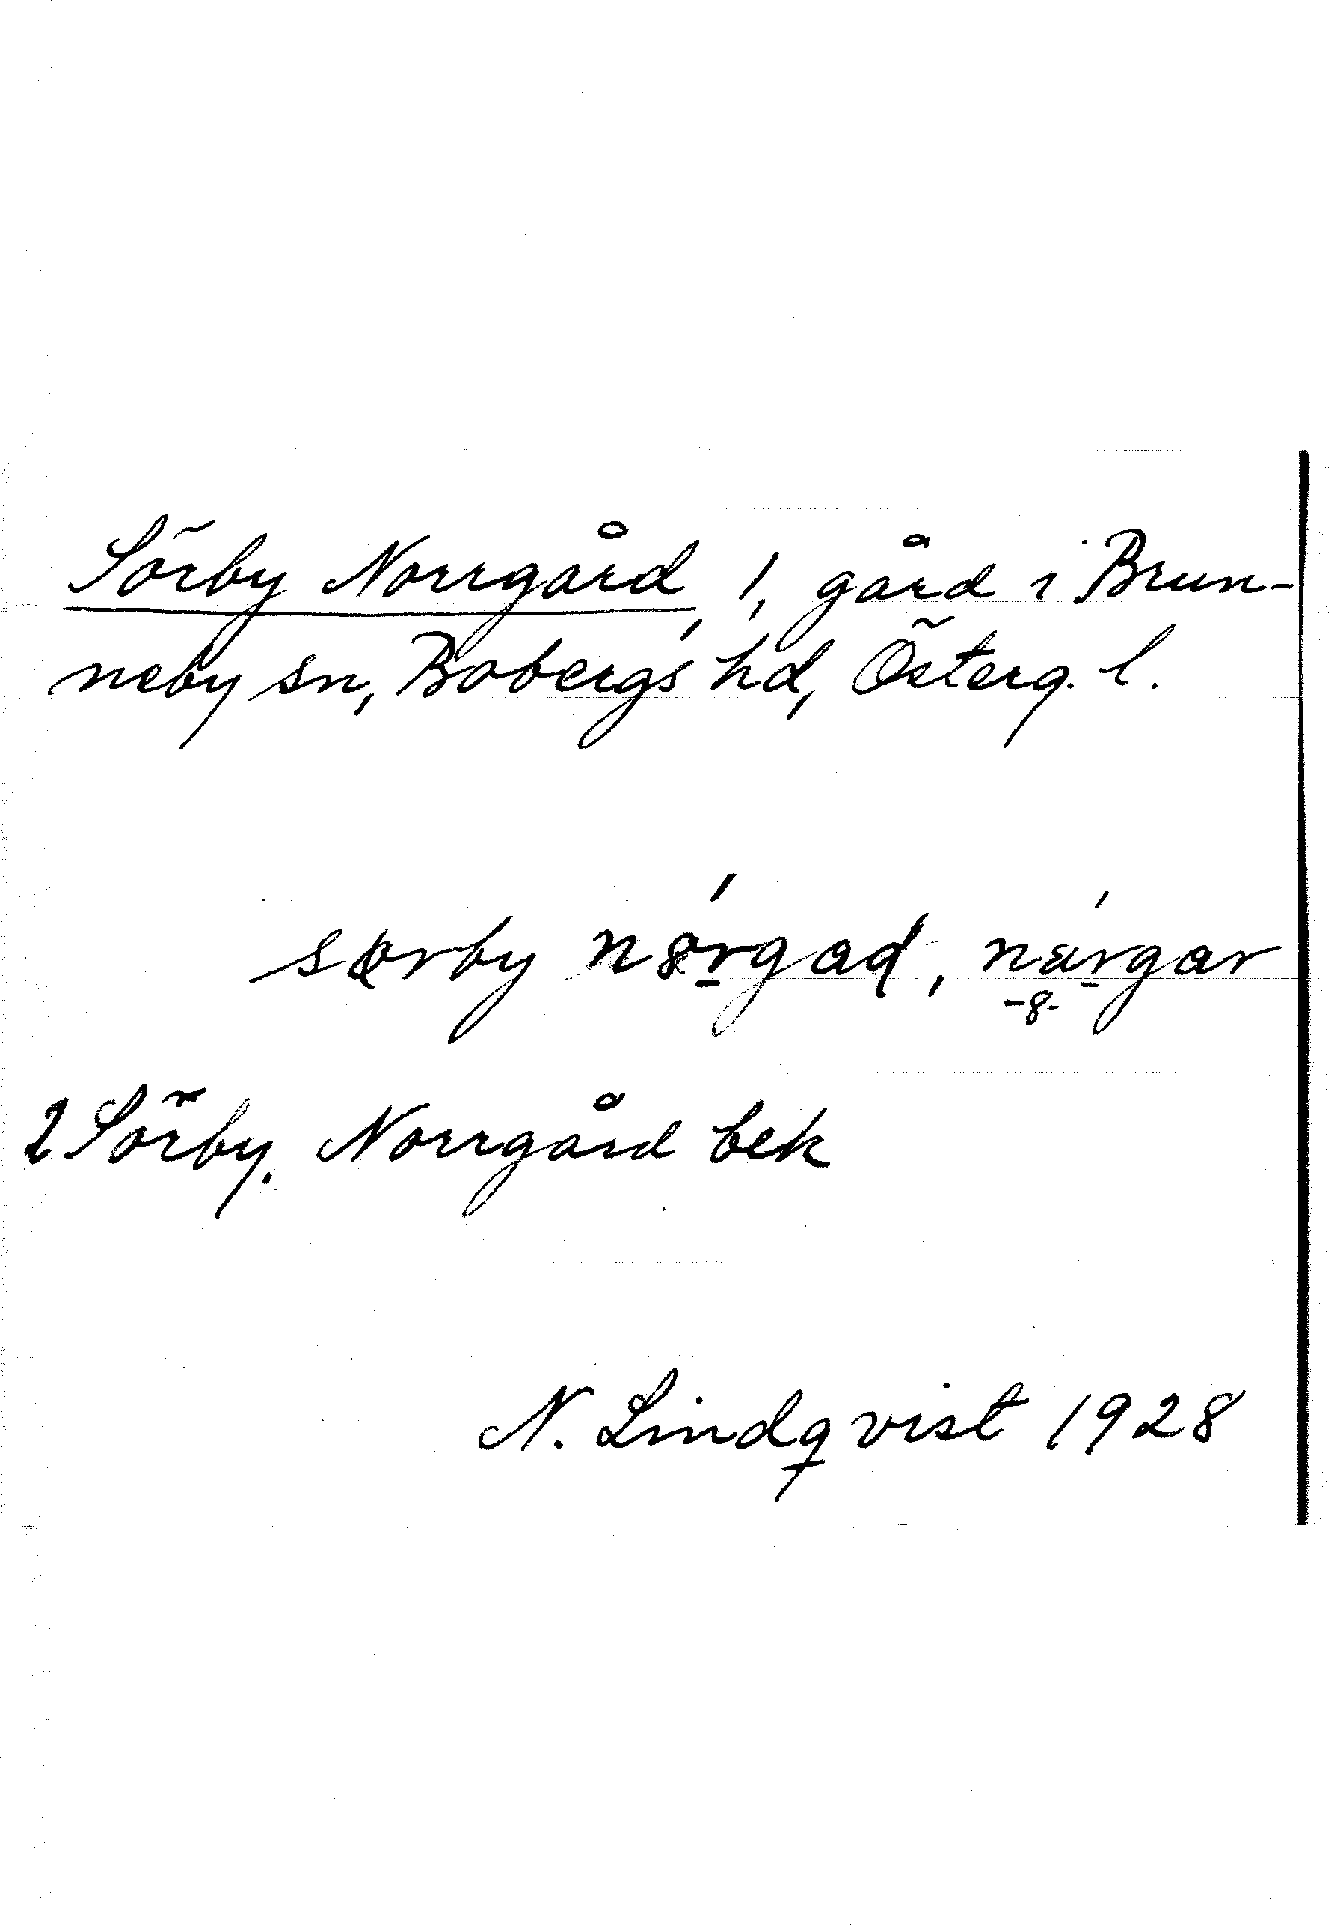 Sörby Norrgård, 1, gård i Brun-
neby sn, Bobergs hd, Österg. l.
sørby nórgad, nárgar
-8-
2 Sörby. Norrgård bek
N. Lindqvist 1928